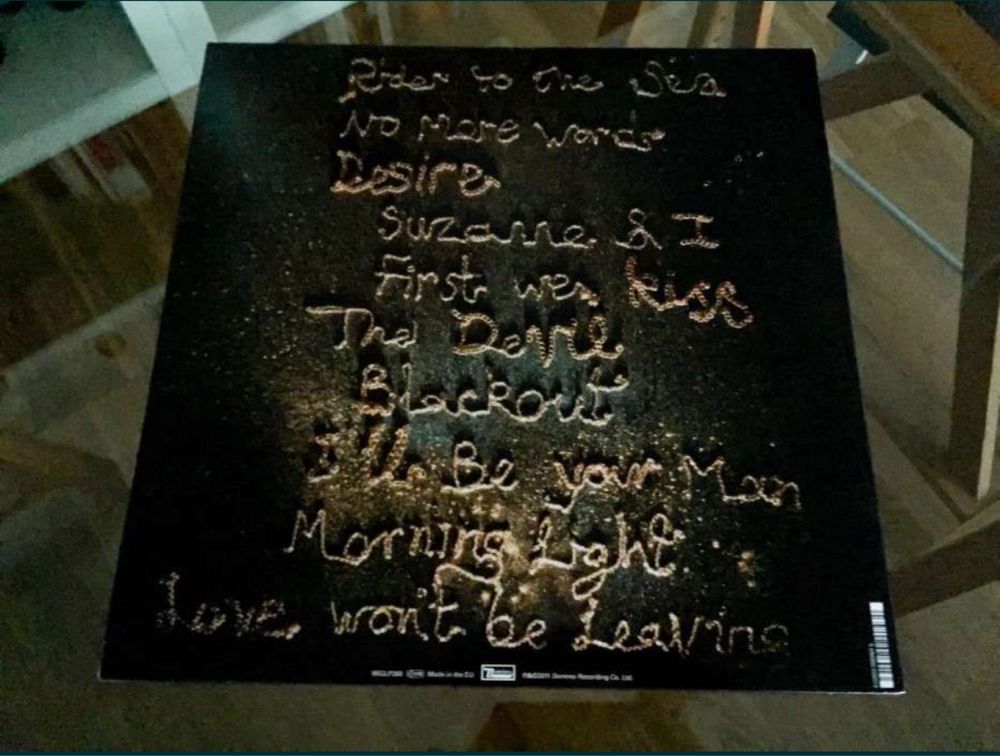 Rider to the Sea
No More words
Desire
Suzanne & I
First we kiss
The Devil
Blackout
I'll Be your Man
Morning Light
Love won't be Leaving
Made in the EU Domino ℗&©2011 Domino Recording Co. Ltd.